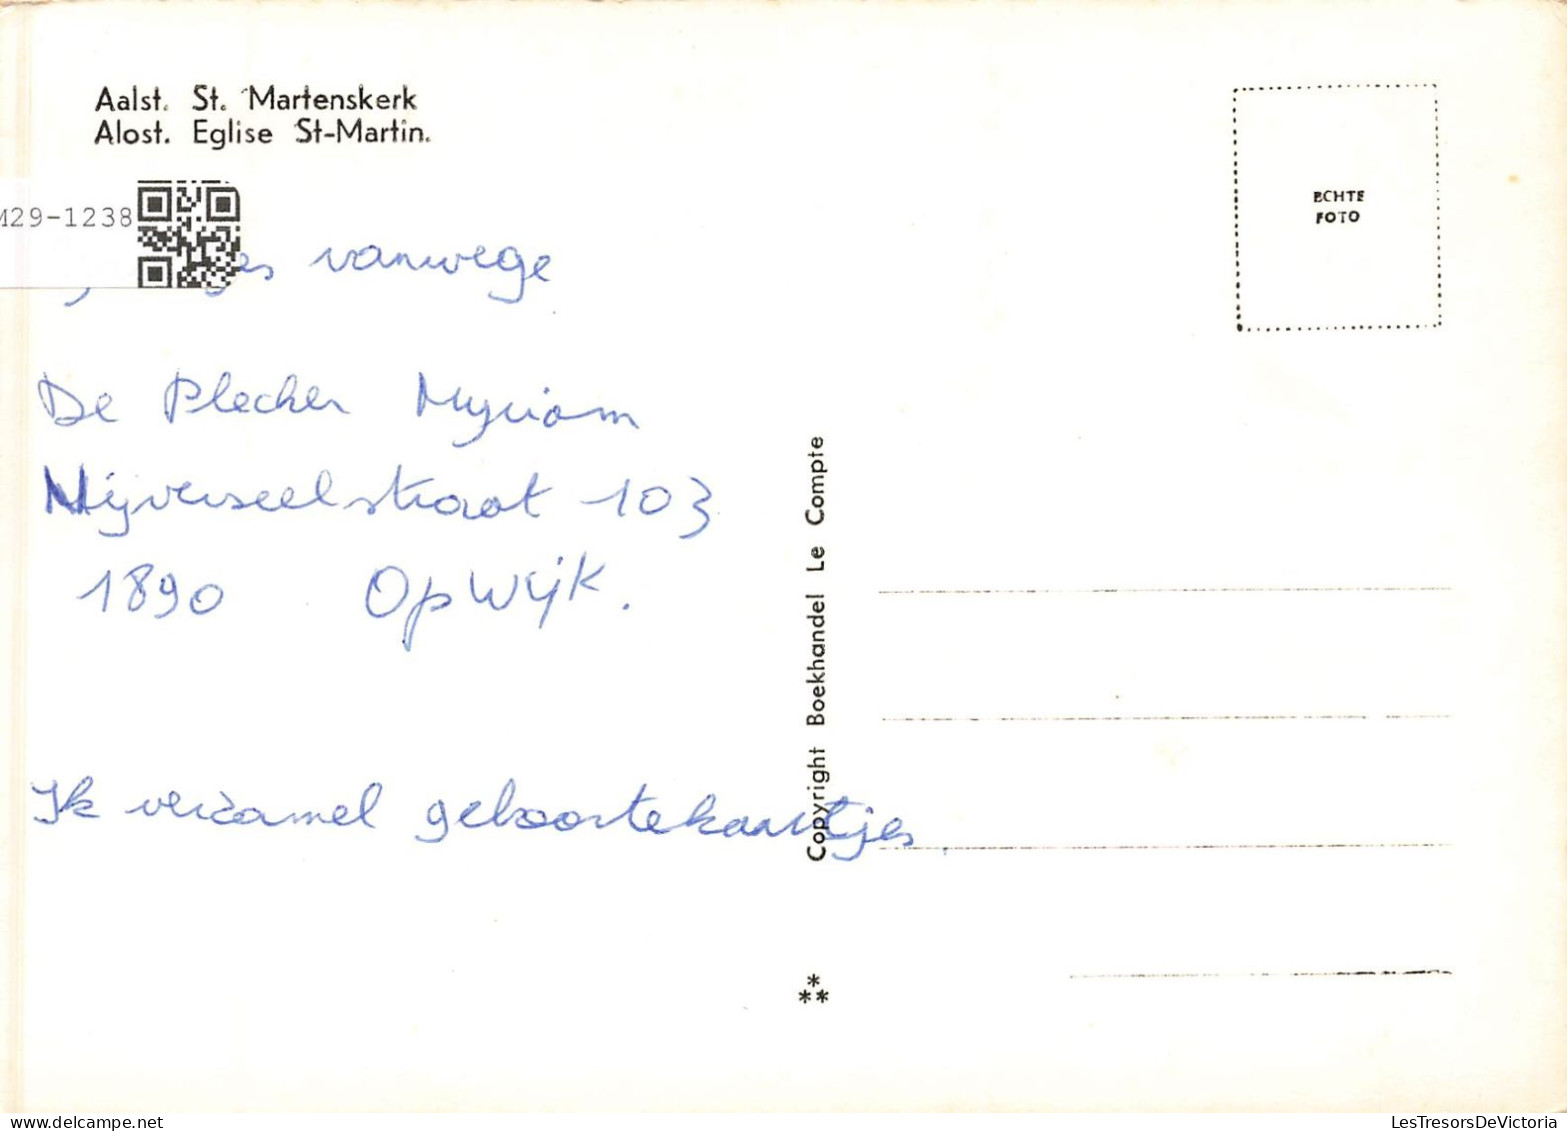 Aalst. St. Martenskerk
Alost. Eglise St-Martin.
ECHTE
FOTO
M29-1238
vanwege
De Plecker Myriam
Nijverseelstraat 103
1890 Opwijk.
Ik verzamel geboortekaartjes
Copyright Boekhandel Le Compte
delcampe.net
LesTresorsDeVictoria